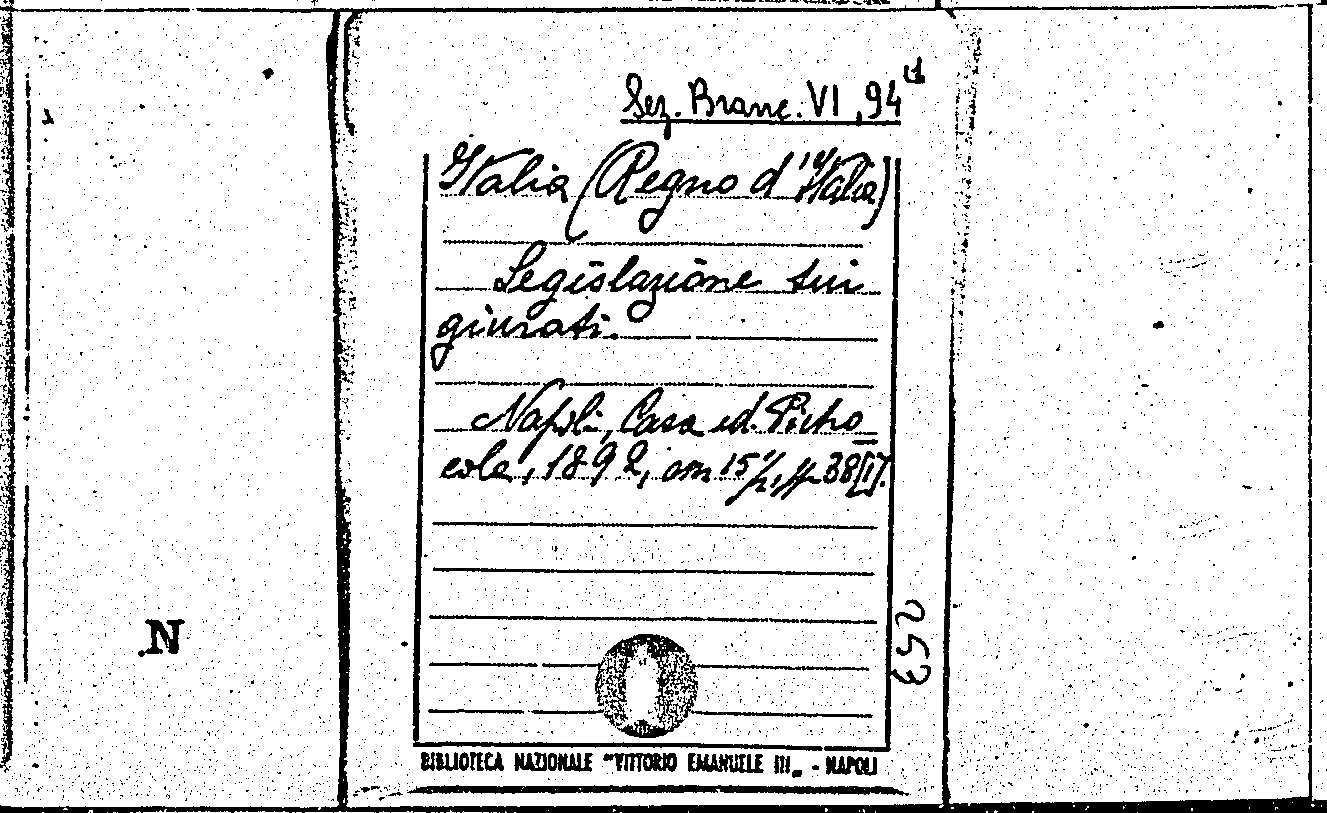 Sez. Branc. VI, 94
Italia (Regno d'Italia)
Legislazione sui
giurati.
Napoli, Casa ed. Pietro
cola, 1892, cm 15½, pp 38[I].
253
N
BIBLIOTECA NAZIONALE "VITTORIO EMANUELE III" - NAPOLI